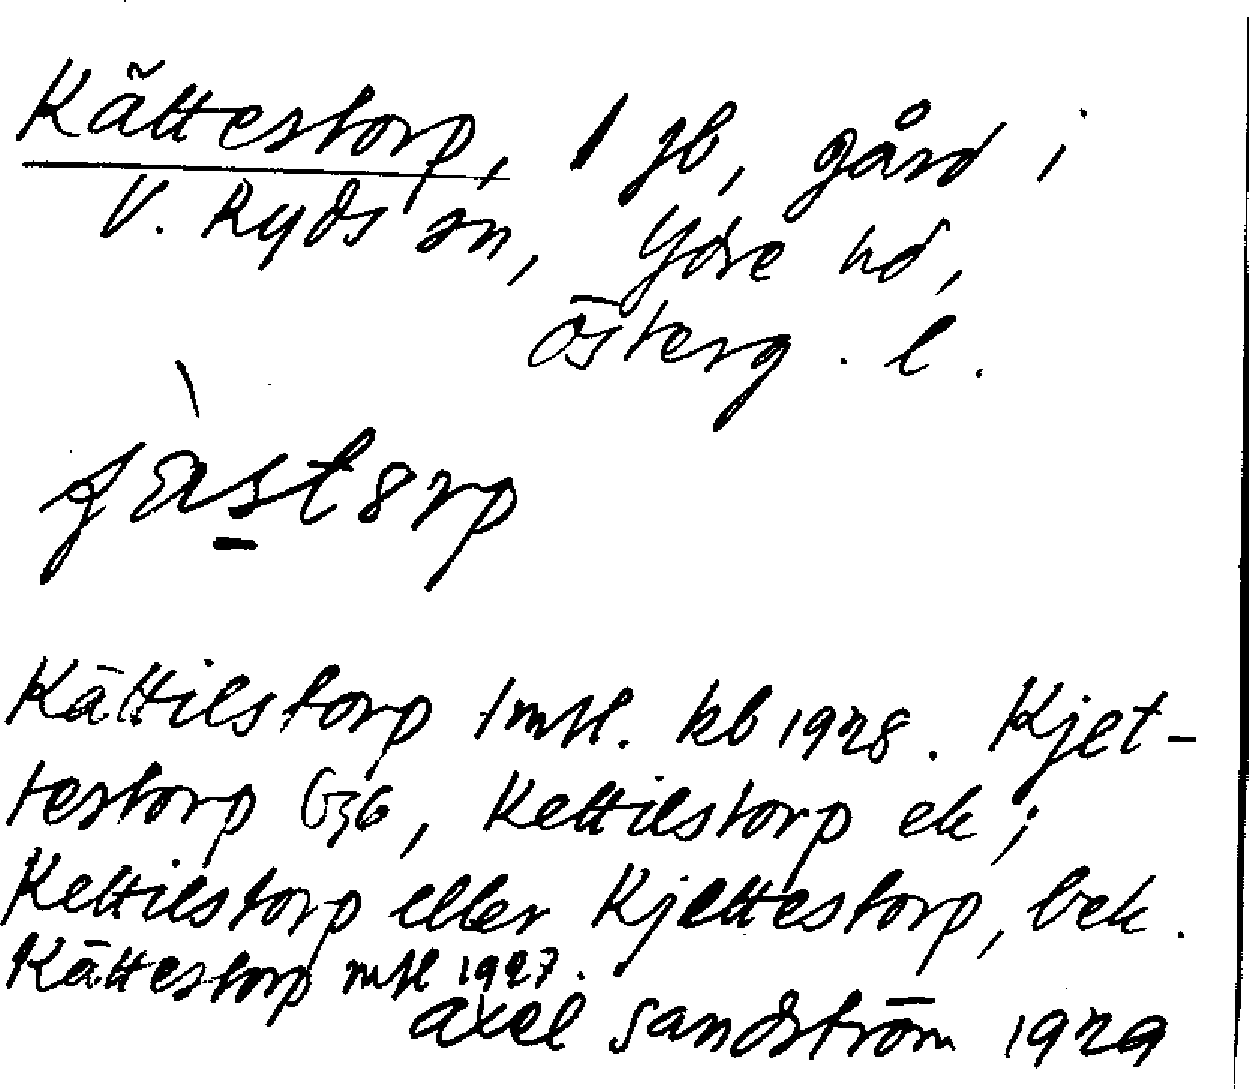 Kättestorp, 1 gb, gård i
V. Ryds sn, Ydre hd,
Österg. l.
Kättilstorp 1 mtl. kb 1928. Kjet-
testorp G36, Kettilstorp ek;
Kettilstorp eller Kjettestorp, bek.
Kättestorp mtl 1927.
Axel Sandström 1929